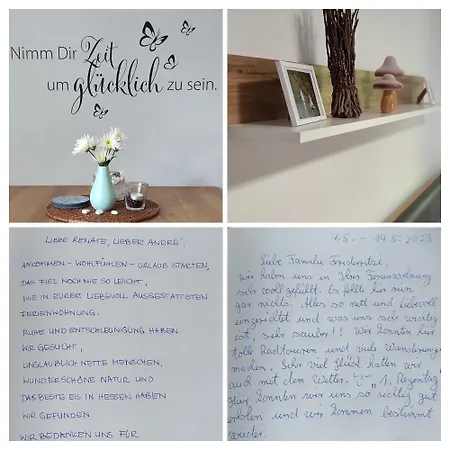 Nimm Dir Zeit
um glücklich zu sein.
LIEBE RENATE, LIEBER ANDRÉ,
ANKOMMEN - WOHLFÜHLEN - URLAUB STARTEN,
DAS FIEL NOCH NIE SO LEICHT,
WIE IN EURER LIEBEVOLL AUSGESTATTETEN
FERIENWOHNUNG.
RUHE UND ENTSCHLEUNIGUNG HABEN
WIR GESUCHT,
UNGLAUBLICH NETTE MENSCHEN,
WUNDERSCHÖNE NATUR UND
DAS BESTE EIS IN HESSEN HABEN
WIR GEFUNDEN.
WIR BEDANKEN UNS FÜR
4.5. - 14.5.2023
Liebe Familie
wir haben uns in Ihrer Ferienwohnung
sehr wohl gefühlt. Es fehlt hier nun
gar nichts. Alles so nett und liebevoll
eingerichtet und was uns sehr wichtig
ist, sehr sauber!! Wir konnten hier
tolle Radtouren und viele Wanderungen
machen. Sehr viel Glück hatten wir
auch mit dem Wetter. 1. Regentag
Hier konnten wir uns so richtig gut
erholen und wir kommen bestimmt
wieder.